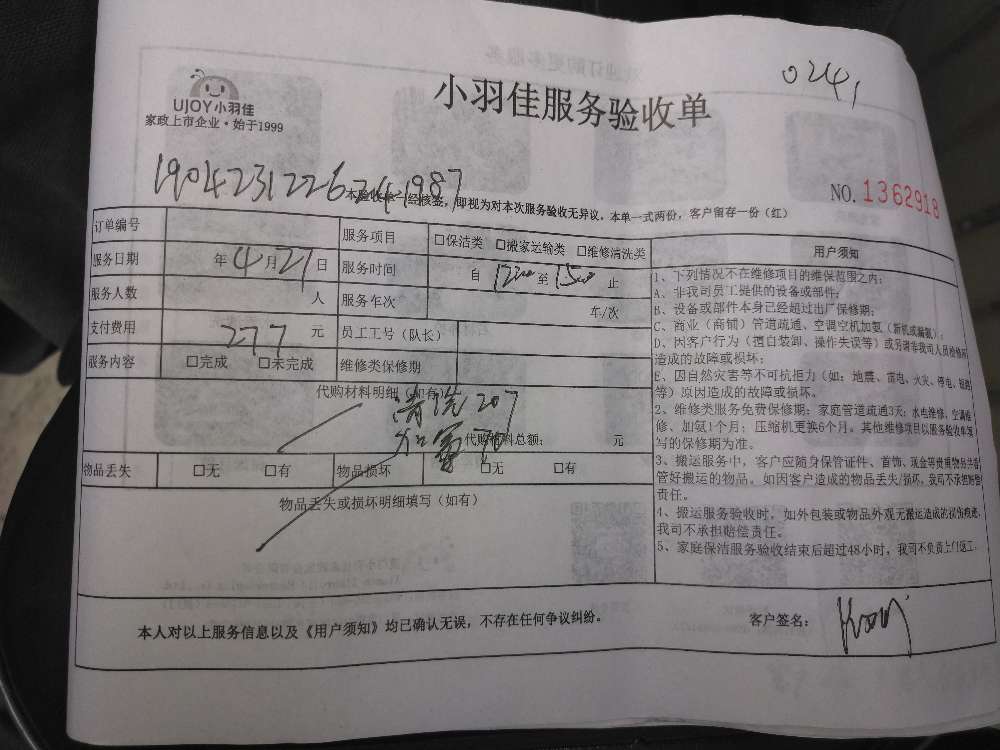 0241
UJOY小羽佳
家政上市企业·始于1999
小羽佳服务验收单
NO.1362918
本验收单一经核签，即视为对本次服务验收无异议，本单一式两份，客户留存一份（红）
订单编号 服务项目 □保洁类 □搬家运输类 □维修清洗类
服务日期 年4月27日 服务时间 自1200至1500止
服务人数 人 服务车次 车/次
支付费用 277元 员工工号（队长）
服务内容 □完成 □未完成 维修类保修期
代购材料明细（如有）
清洗207
70
代购材料总额： 元
物品丢失 □无 □有 物品损坏 □无 □有
物品丢失或损坏明细填写（如有）
用户须知
1、下列情况不在维修项目的维保范围之内：
A、非我司员工提供的设备或部件；
B、设备或部件本身已经超过出厂保修期；
C、商业（商铺）管道疏通、空调空机加氨（新机或漏氨）；
D、因客户行为（擅自装卸、操作失误等）或另请非我司人员检修所
造成的故障或损坏；
E、因自然灾害等不可抗拒力（如：地震、雷电、火灾、停电、短路
等）原因造成的故障或损坏。
2、维修类服务免费保修期：家庭管道疏通3天；水电维修、空调维
修、加氨1个月；压缩机更换6个月。其他维修项目以服务验收单填
写的保修期为准。
3、搬运服务中，客户应随身保管证件、首饰、现金等贵重物品并看
管好搬运的物品。如因客户造成的物品丢失/损坏，我司不承担赔偿
责任。
4、搬运服务验收时，如外包装或物品外观无搬运造成的损伤痕迹，
我司不承担赔偿责任。
5、家庭保洁服务验收结束后超过48小时，我司不负责上门返工。
本人对以上服务信息以及《用户须知》均已确认无误，不存在任何争议纠纷。
客户签名：